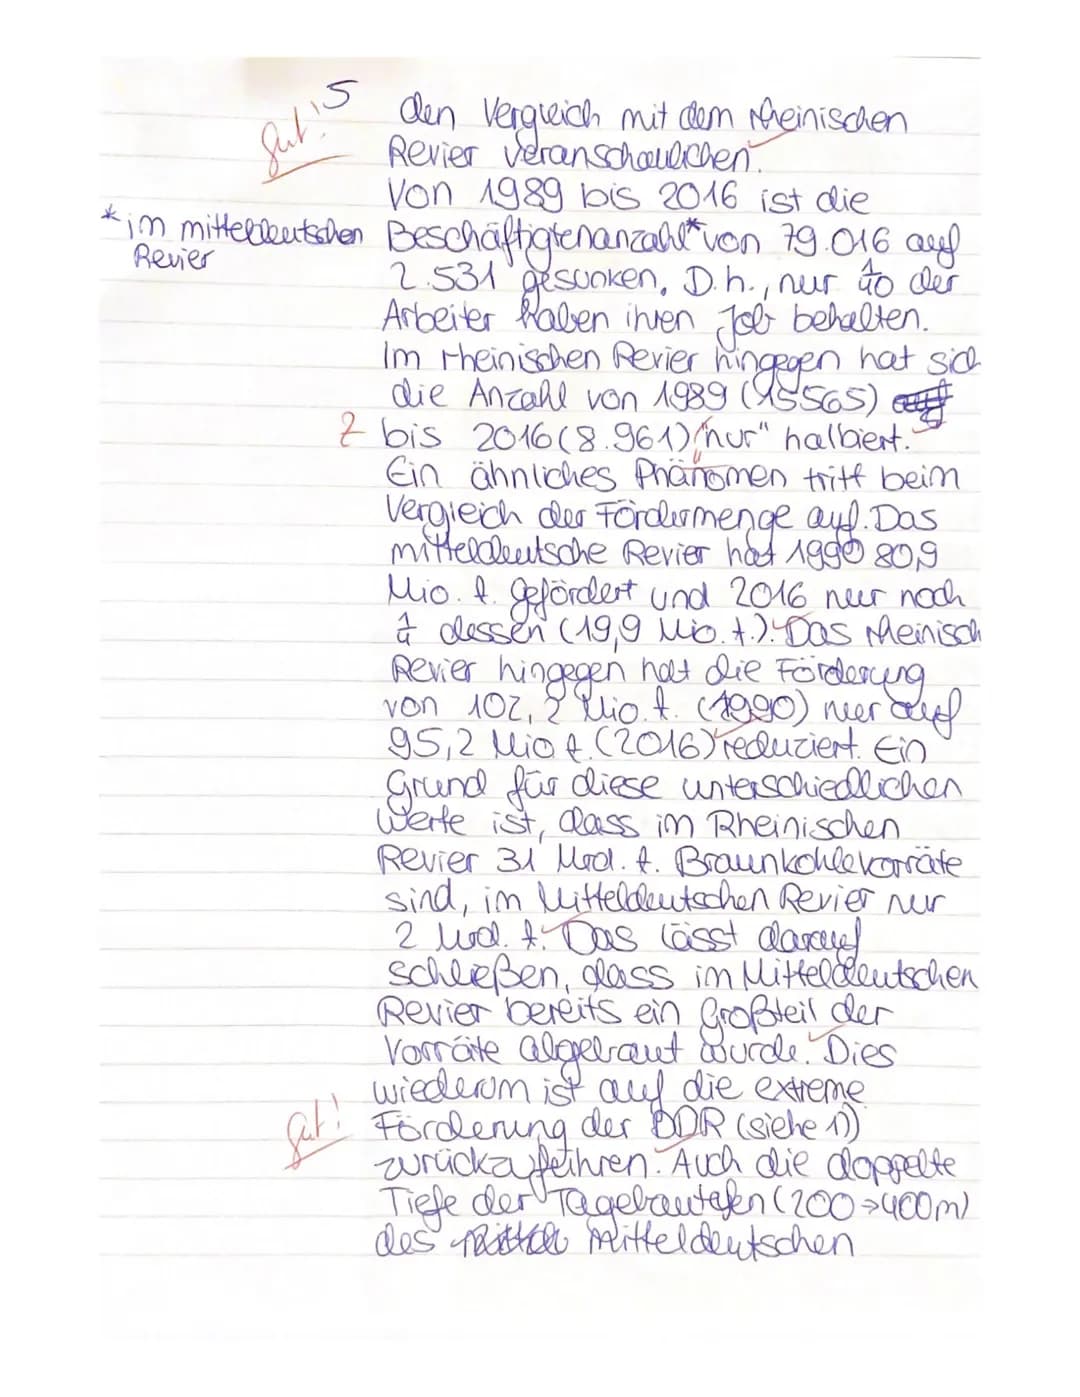 5
gut!
den Vergleich mit dem Rheinischen
Revier veranschaulichen.
Von 1989 bis 2016 ist die
* im mitteldeutschen Revier
Beschäftigtenanzahl* von 79.016 auf
2.531 gesunken, D.h., nur der
Arbeiter haben ihren Job behalten.
Im rheinischen Revier hingegen hat sich
die Anzahl von 1989 (15565)
Z bis 2016 (8.961) "nur" halbiert.
Ein ähnliches Phänomen tritt beim
Vergleich der Fördermenge auf. Das
mitteldeutsche Revier hat 1990 80,9
Mio. t. gefördert und 2016 nur noch
dessen (19,9 Mio. t.). Das Rheinisch
Revier hingegen hat die Förderung
von 102,2 Mio. t. (1990) nur auf
95,2 Mio t. (2016) reduziert. Ein
Grund für diese unterschiedlichen
Werte ist, dass im Rheinischen
Revier 31 Mrd. t. Braunkohlevorräte
sind, im Mitteldeutschen Revier nur
2 Mrd. t. Das lässt darauf
schließen, dass im Mitteldeutschen
Revier bereits ein Großteil der
Vorräte abgebaut wurde. Dies
wiederum ist auf die extreme
gut! Förderung der DDR (siehe 1)
zurückzuführen. Auch die doppelte
Tiefe der (200→400m)
des Mitteldeutschen